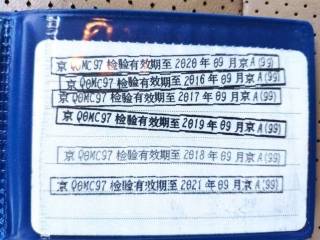 京 Q0MC97 检验有效期至 2020 年 09 月京 A(99)
京 Q0MC97 检验有效期至 2016 年 09 月京 A(99)
京 Q0MC97 检验有效期至 2017 年 09 月京 A(99)
京 Q0MC97 检验有效期至 2019 年 09 月京 A(99)
京 Q0MC97 检验有效期至 2018 年 09 月京 A(99)
京 Q0MC97 检验有效期至 2021 年 09 月京 A(99)